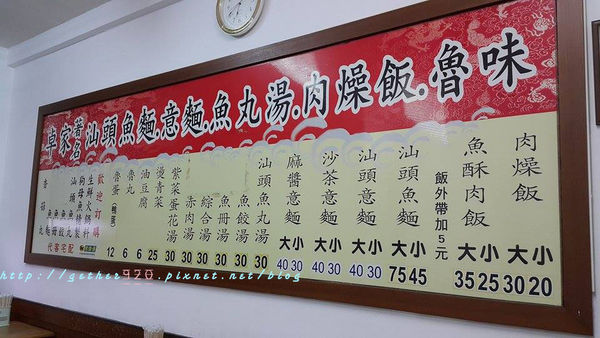 卓家著名汕頭魚麵.意麵.魚丸湯.肉燥飯.魯味
肉燥飯 大30 小20
魚酥肉飯 大35 小25
飯外帶加5元
汕頭魚麵 大75 小45
汕頭意麵 大40 小30
沙茶意麵 大40 小30
麻醬意麵 大40 小30
汕頭魚丸湯 30
魚餃湯 30
魚冊湯 30
綜合湯 30
赤肉湯 30
紫菜蛋花湯 30
燙青菜 25
油豆腐 6
魯丸 6
魯蛋 12
歡迎訂購
代客宅配
http://gether920.pixnet.net/blog